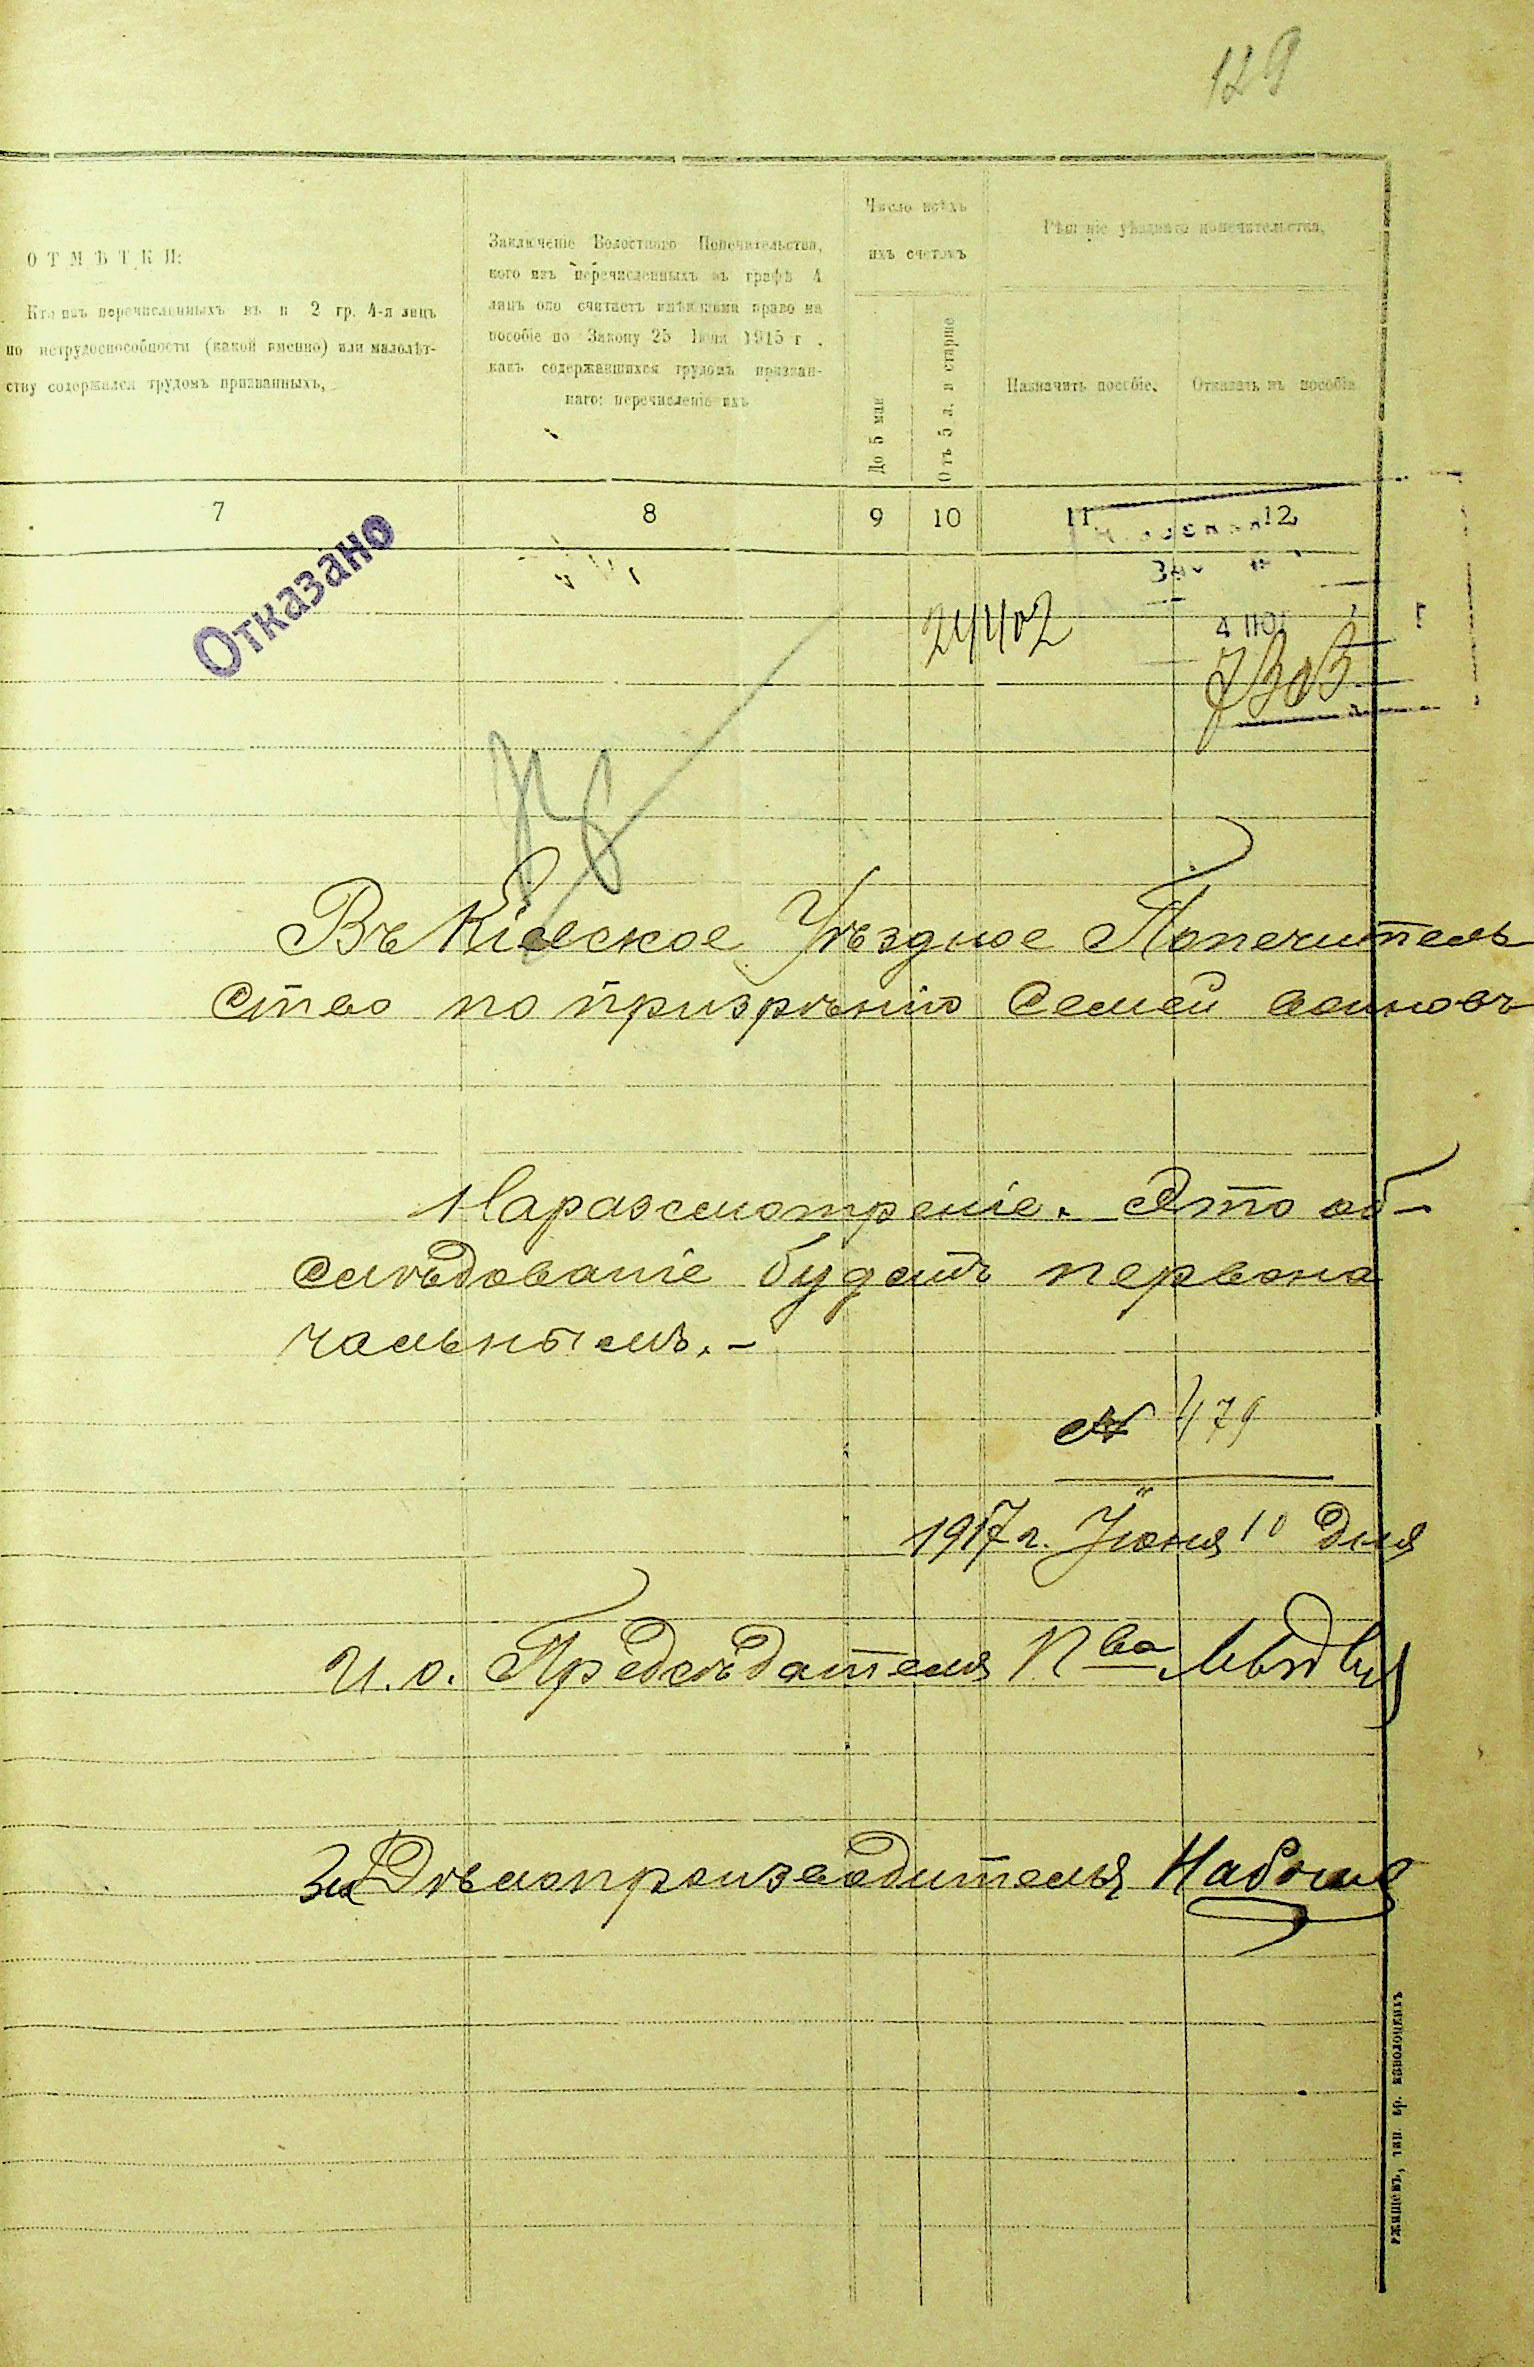 129
ОТМѢТКИ:
Кто изъ перечисленныхъ въ и 2 гр. 4-я лицъ
по нетрудоспособности (какой именно) или малолѣт-
ству содержался трудомъ призванныхъ,
Заключеніе Волостного Попечительства,
кого изъ перечисленныхъ въ графѣ 4
лицъ оно считаетъ имѣющими право на
пособіе по Закону 25 Іюня 1915 г.
какъ содержавшихся трудомъ призван-
наго: перечисленіе ихъ
Число всѣхъ
ихъ счетомъ
До 5 лѣтъ
Отъ 5 л. и старше
Рѣшеніе уѣзднаго попечительства,
Назначить пособіе.
Отказать въ пособіи
7 8 9 10 11 12
Отказано
24402
7303
Въ Кіевское Уѣздное Попечитель
ство по призрѣнію семей воиновъ
На разсмотреніе. Это об-
слѣдованіе будетъ первона
чальнымъ.-
№ 479
1917 г. Іюня 10 дня
И. о. Предсѣдателя П-ва
За Дѣлопроизводителя
ржищевъ, тип. бр. изволоцкихъ